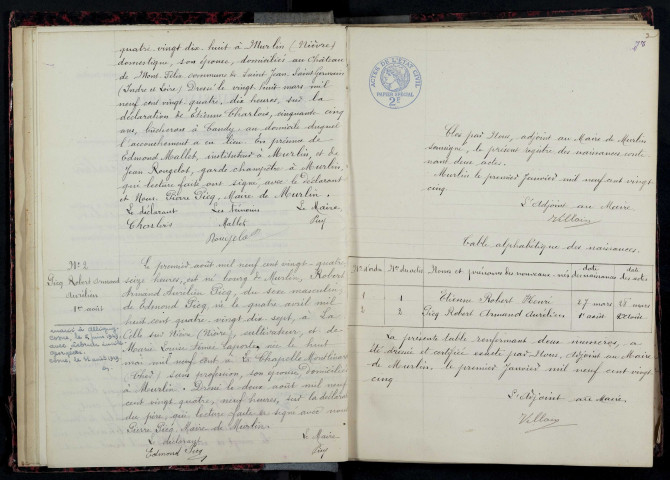 quatre vingt dix huit à Murlin (Nièvre)
domestique, son épouse, domiciliés au Château
de Mont Félix commune de Saint Jean Saint Germain
(Indre et Loire) Dressé le vingt huit mars mil
neuf cent vingt quatre, dix heures, sur la
déclaration de Etienne Charlois, cinquante cinq
ans, bûcheron à Candy, au domicile duquel
l'accouchement a eu lieu. En présence de
Edmond Mallet, instituteur à Murlin, et de
Jean Rougelot, garde champêtre à Murlin,
qui lecture faite ont signé avec le déclarant
et Nous Pierre Picq, Maire de Murlin.
Le déclarant Les témoins Le Maire
Charlois Mallet Picq
Rougelot
N° 2
Picq Robert Armand
Aurélien
1er août
Le premier août mil neuf cent vingt-quatre
seize heures, est né bourg de Murlin, Robert
Armand Aurélien Picq, du sexe masculin
de Edmond Picq, né le quatre avril mil
huit cent quatre vingt dix sept, à La
Celle sur Nièvre (Nièvre), cultivateur et de
Louise
mil neuf cent à La Chapelle Montlinard
(Cher) sans profession, son épouse, domiciliés
à Murlin. Dressé le deux août mil neuf
cent vingt quatre, neuf heures, sur la déclaration
du père, qui, lecture faite a signé avec nous
Pierre Picq, Maire de Murlin.
Le déclarant Le Maire
Edmond Picq Picq
ACTES DE L'ÉTAT CIVIL
PAPIER SPÉCIAL
2F
Clos par Nous, adjoint au Maire de Murlin
soussigné, le présent registre des naissances conte
nant deux actes.
Murlin le premier Janvier mil neuf cent vingt-
cinq
L'Adjoint au Maire
Villain
Table alphabétique des naissances.
N° d'ordre N° des actes Noms et prénoms des nouveaux-nés date des naissances date des actes
1 1 Etienne Robert Henri 27 mars 28 mars
2 2 Picq Robert Armand Aurélien 1er août 2 août
La présente table renfermant deux numéros, a
été dressée et certifiée exacte par Nous, Adjoint au Maire
de Murlin, le premier janvier mil neuf cent vingt
cinq
L'Adjoint au Maire
Villain